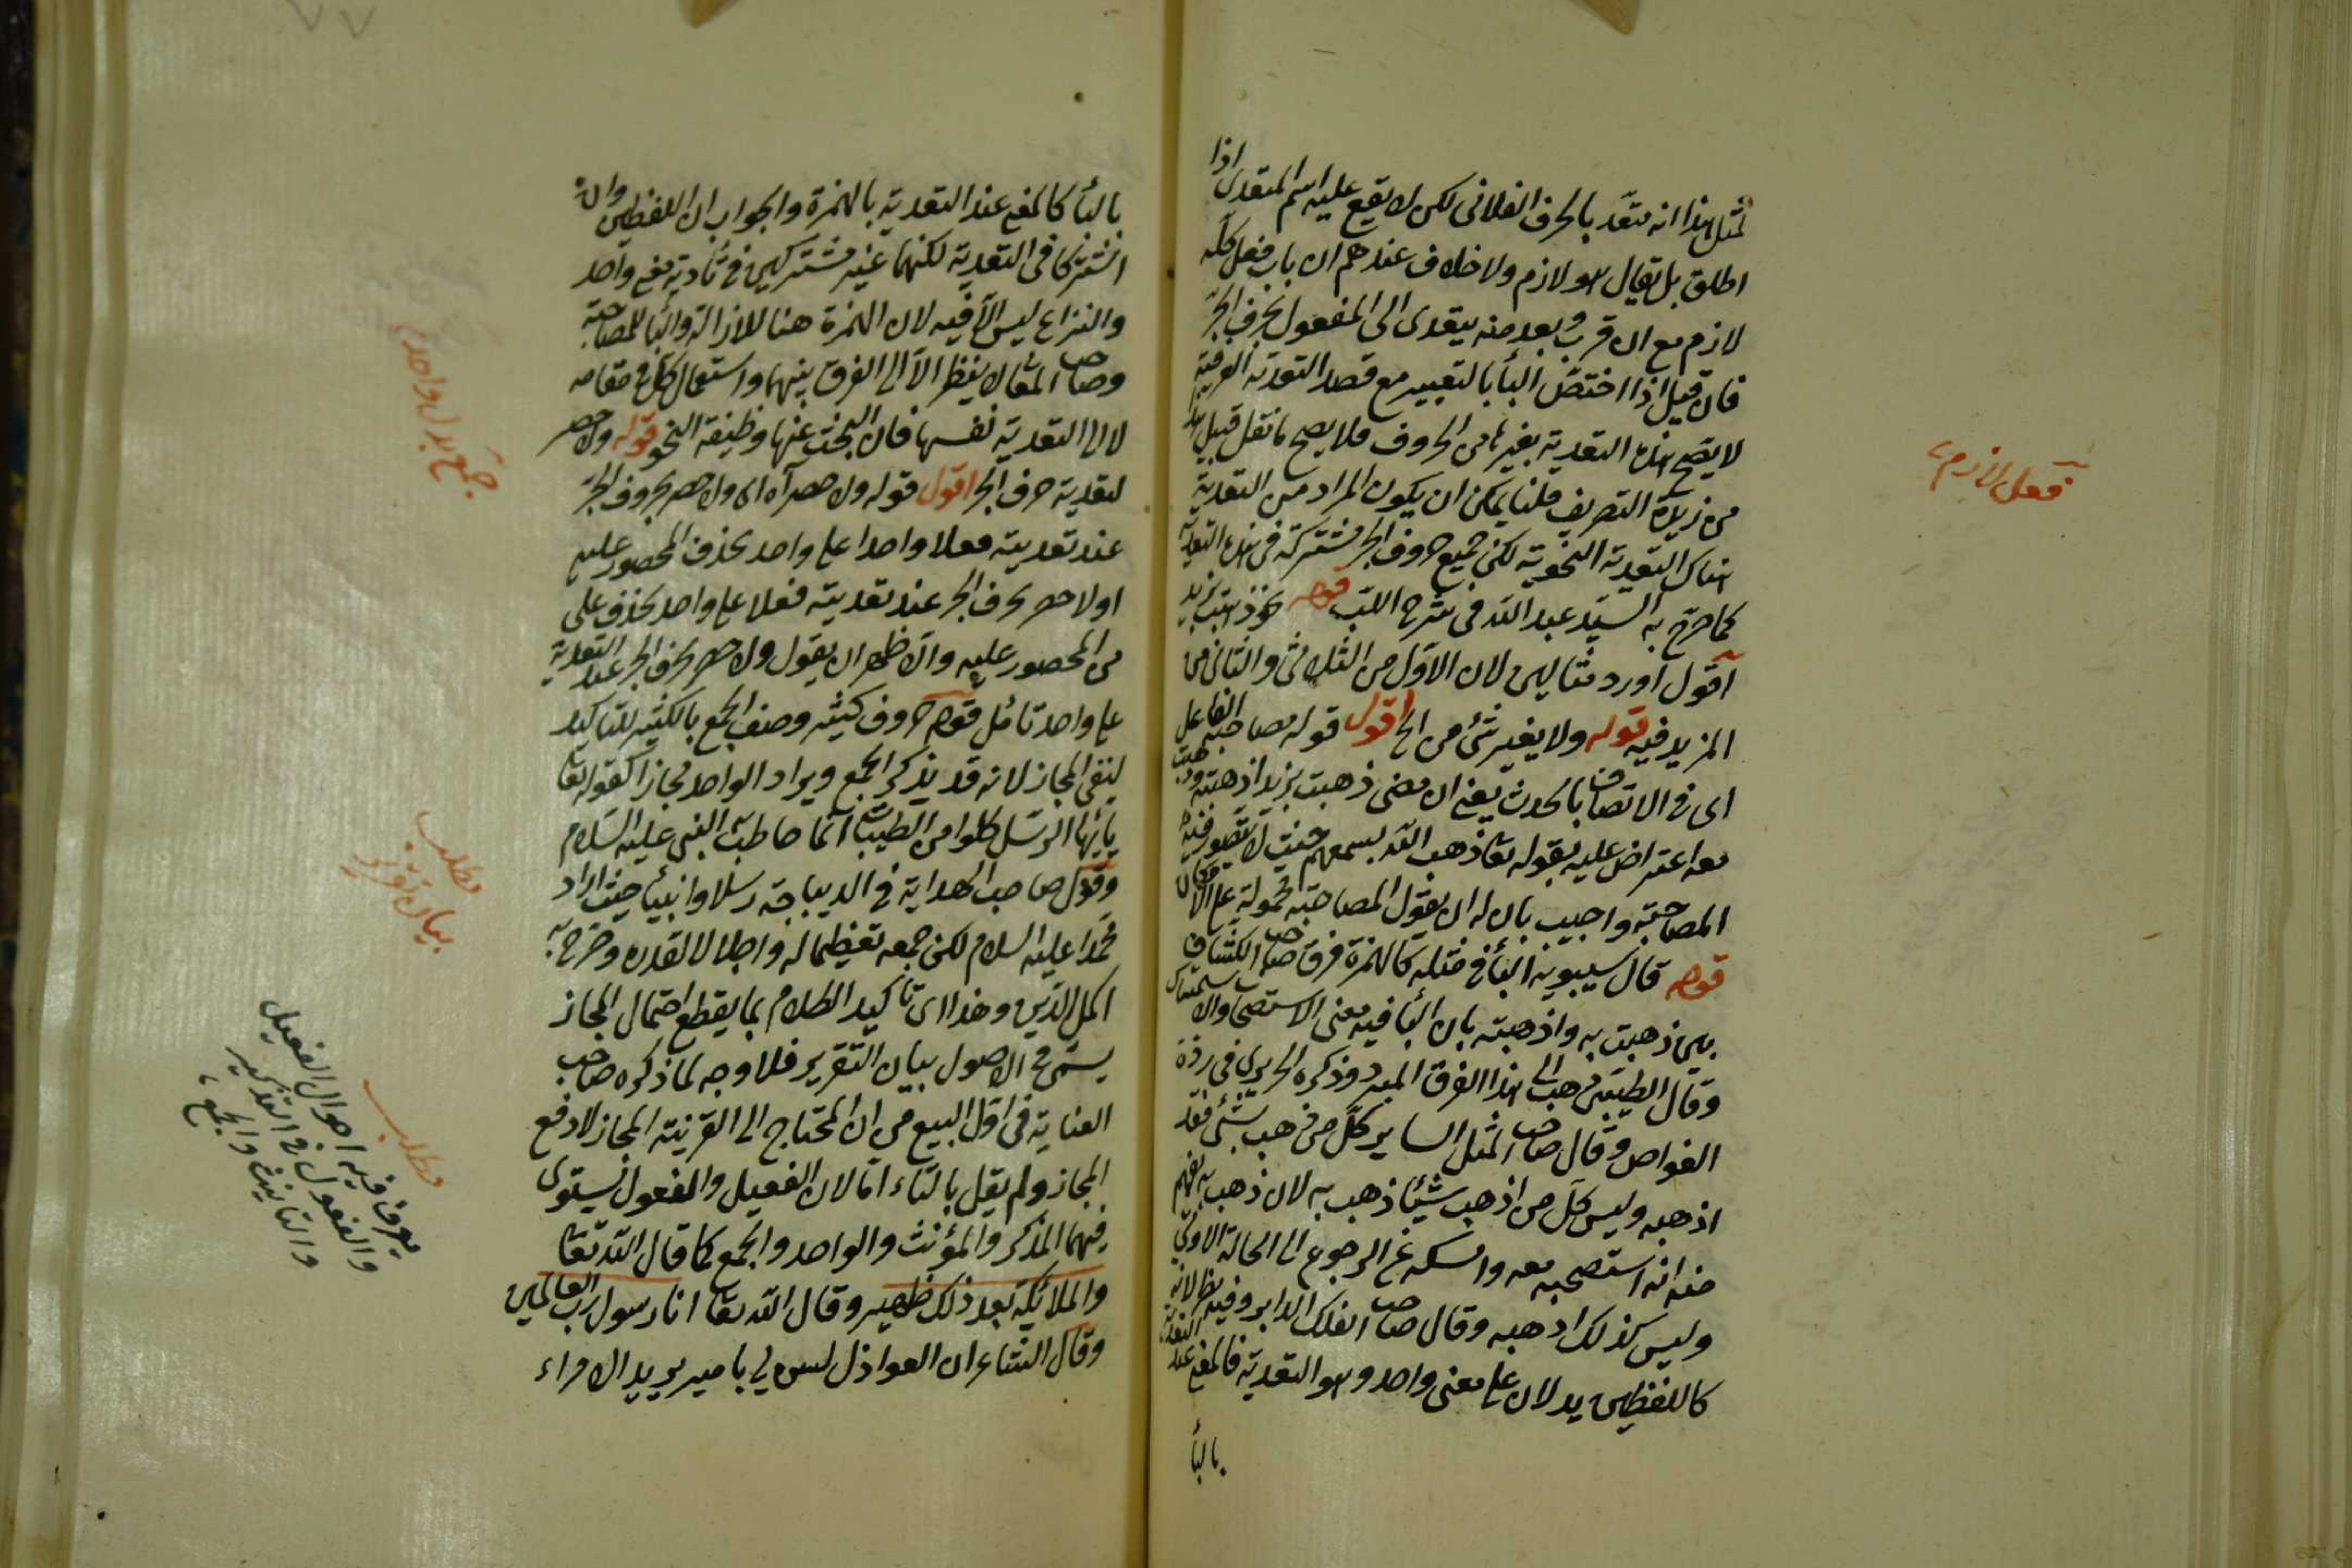 لمثل هذا انه متعد بالحرف الفلانى لكن لا يقع عليه اسم المتعدى اذا
اطلق بل يقال هو لازم ولا خلاف عندهم ان باب فعل كله
لازم مع ان قرب وبعد منه يتعدى الى المفعول بحرف الجر
فان قيل اذا اختص البأ بالتغيير مع قصد التعدية العرفية
لا يصح هذه التعدية بغيرها من الحروف فلا يصح ما نقل قبيل هذا
من زبدة التصريف قلنا يمكن ان يكون المراد من التعدية
هناك التعدية النحوية لكن جميع حروف الجر مشتركة فى هذه التعدية
كما صرح به السيد عبد الله فى شرح اللب قوله نحو ذهبت بزيد
اقول اورد مثالين لان الاول من الثلاثى والثانى من
المزيد فيه قوله ولا يغير شئ من الخ اقول قوله مصاحبة الفاعل
اى فى الاتصاف بالحدث يعنى ان معنى ذهبت بزيد اذهبته وذهبت
معه اعترض عليه بقوله تعا ذهب الله بسمعهم حيث لا يتصور فيه
المصاحبة واجيب بان له ان يقول المصاحبة محمولة على
قوله قال سيبويه البأ فى مثله كالهمزة فرق صاحب الكشاف
بين ذهبت به واذهبته بان البأ فيه معنى الاستصحاب والاستمساك
وقال الطيبى ذهب الى هذا الفرق المبرد وذكره الحريرى فى درة
الغواص وقال صاحب المثل الساير كل من ذهب بشئ فقد
اذهبه وليس كل من اذهب شيئا ذهب به لان ذهب به يفهم
منه انه استصحبه معه وامسكه عن الرجوع الى الحالة الاولى
وليس كذلك اذهبه وقال صاحب الفلك الداير وفيه نظر لانه
كاللفظين يدلان على معنى واحد وهو التعدية فالمعنى عند التعدية
بالبأ
فعل لازم
بالبأ كالمعنى عند التعدية بالهمزة والجواب ان اللفظين وان
اشتركا فى التعدية لكنهما غير مشتركين فى تأدية معنى واحد
والنزاع ليس الا فيه لان الهمزة هنا للازالة والبأ للمصاحبة
وصاحب المعانى لا ينظر الا الى الفرق بينهما واستعمال كل فى مقامه
لا الى التعدية نفسها فان البحث عنها وظيفة النحو قوله ولا حصر
لتعدية حرف الجر اقول قوله ولا حصر آه اى ولا حصر بحروف الجر
عند تعديته فعلا واحدا على واحد بحذف المحصور عليه
اولا حصر بحرف الجر عند تعديته فعلا على واحد بحذف على
من المحصور عليه والاظهر ان يقول ولا حصر بحرف الجر عند التعدية
على واحد تأمل قوله حروف كثيرة وصف الجمع بالكثير للتأكيد
لنفى المجاز لانه قد يذكر الجمع ويراد الواحد مجازا كقوله تعا
يا ايها الرسل كلوا من الطيبات انما خاطب به النبى عليه السلام
وقول صاحب الهداية فى الديباجة رسلا وانبيأ حيث اراد
محمدا عليه السلام لكن جمعه تعظيما له واجلالا لقدره وصرح به
اكمل الدين وهذا اى تأكيد الكلام بما يقطع احتمال المجاز
يسمى فى الاصول بيان التقرير فلا وجه لما ذكره صاحب
العناية فى اول البيع من ان المحتاج الى القرينة المجاز لا دفع
المجاز ولم يقل بالتاء اما لان الفعيل والفعول يستوى
فيهما المذكر والمؤنث والواحد والجمع كما قال الله تعا
والملائكة بعد ذلك ظهير وقال الله تعا انا رسول رب العالمين
وقال الشاعر ان العواذل ليس لى بامير يريد الامراء
جمع بدل واحد
مطلب
بيان تقرير
مطلب
يعرف فيه احوال الفعيل
والفعول فى التذكير
والتأنيث والجمع